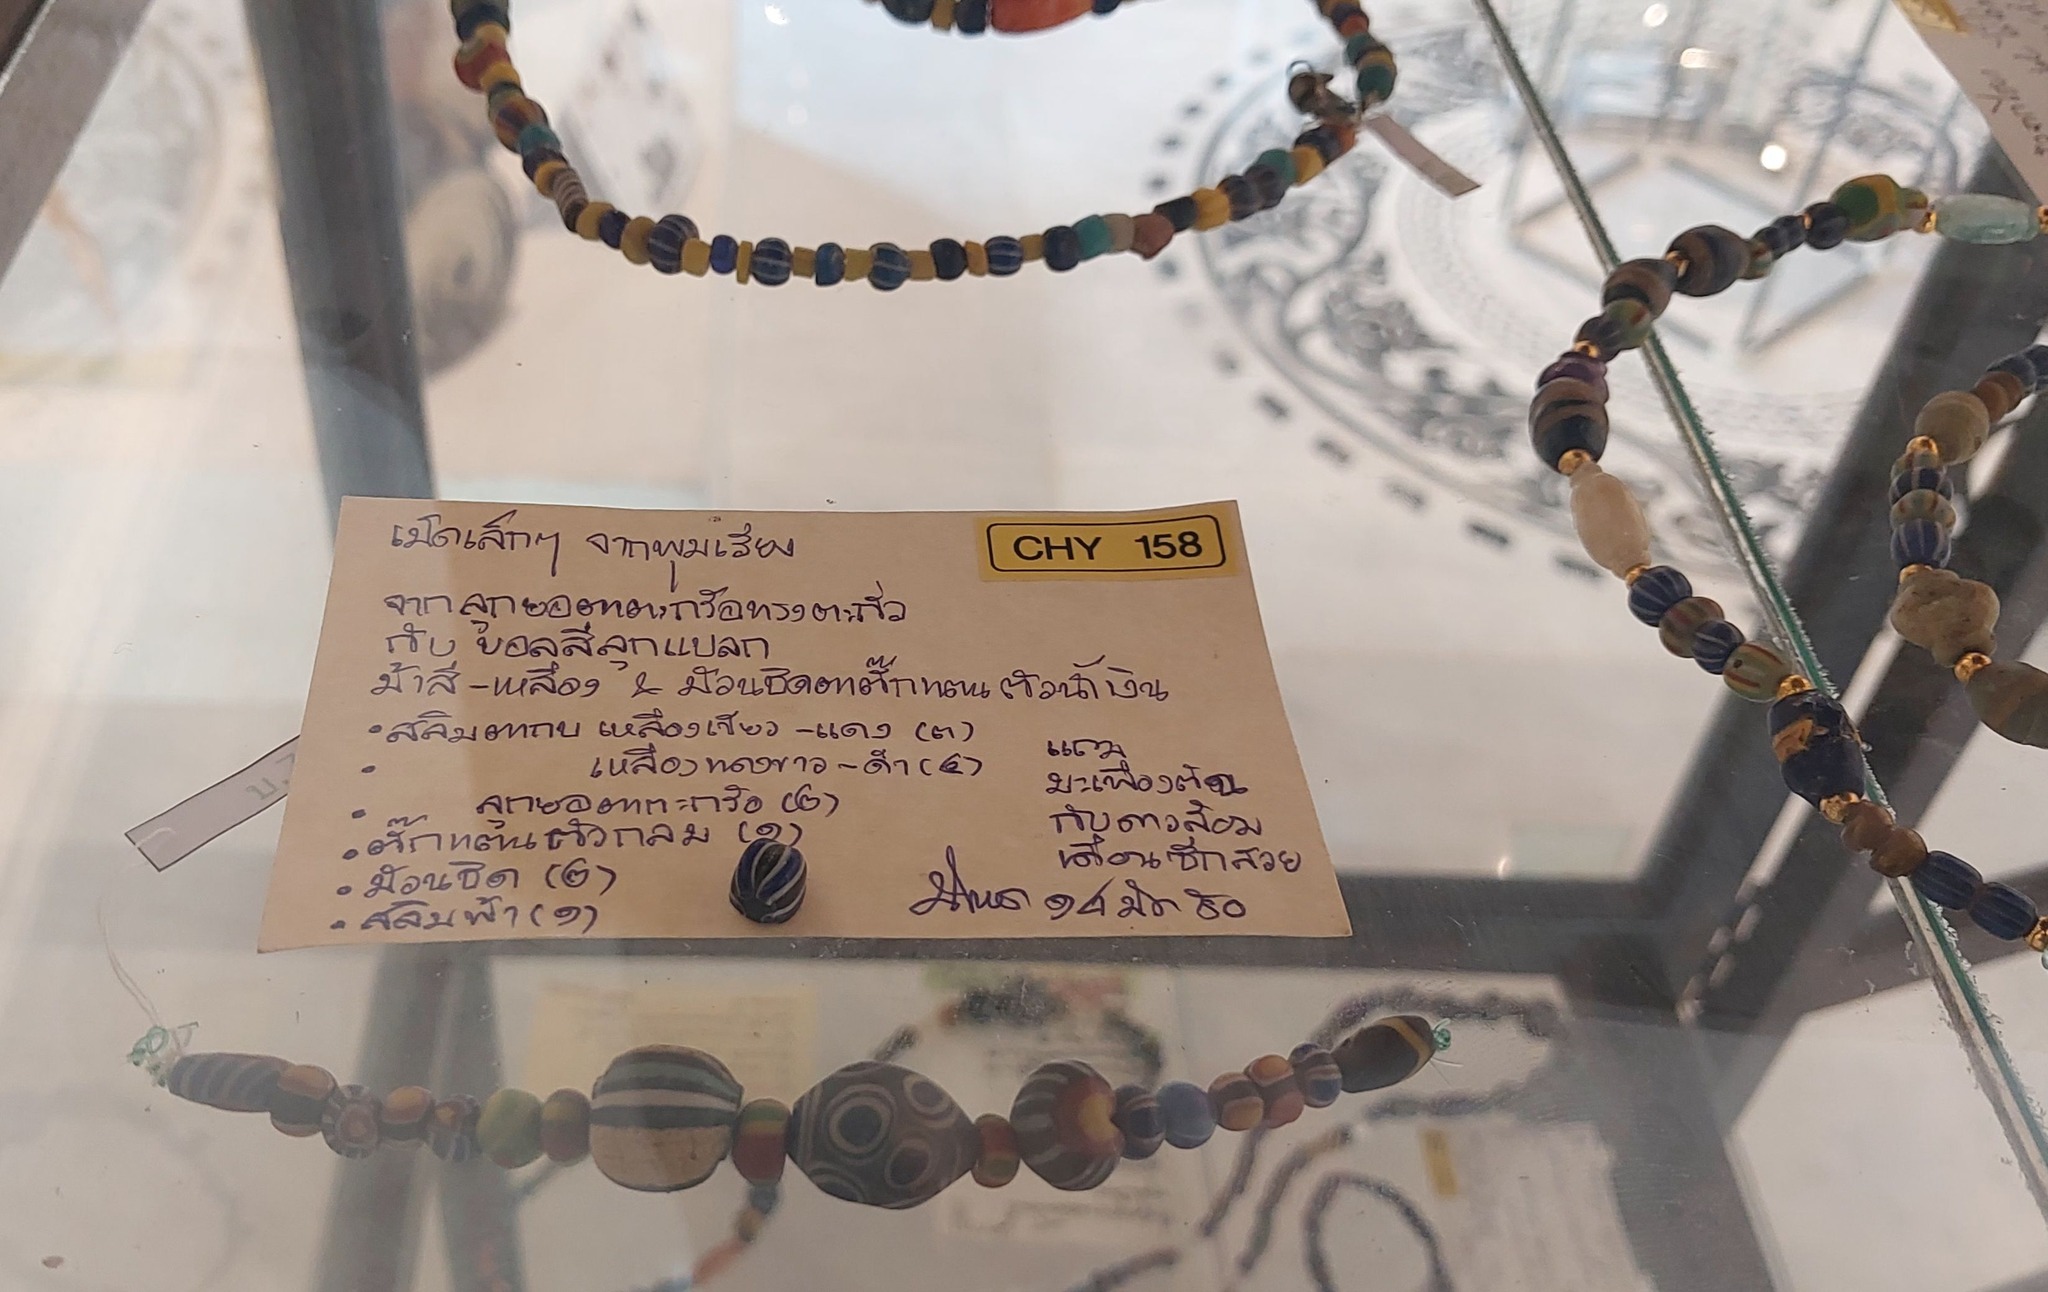 เม็ดเล็กๆ จากพุมเรียง
CHY 158
จากลูกยอตาตะกร้อทรงตะกั่ว
กับ บอลสีลูกแปลก
ม้าสี-เหลือง & ม้วนชิดตาตั๊กแตน ตัวน้ำเงิน
• สลิมตากบ เหลืองเขียว-แดง (๓)
• เหลืองแดงขาว-ดำ (๔)
• ลูกยอตาตะกร้อ (๒)
• ตั๊กแตนตัวกลม (๑)
• ม้วนชิด (๒)
• สลิมฟ้า (๑)
แถม
มะเฟืองตัน
กับดาวล้อม
เดือนซีกสวย
๑๔ มีค ๕๐